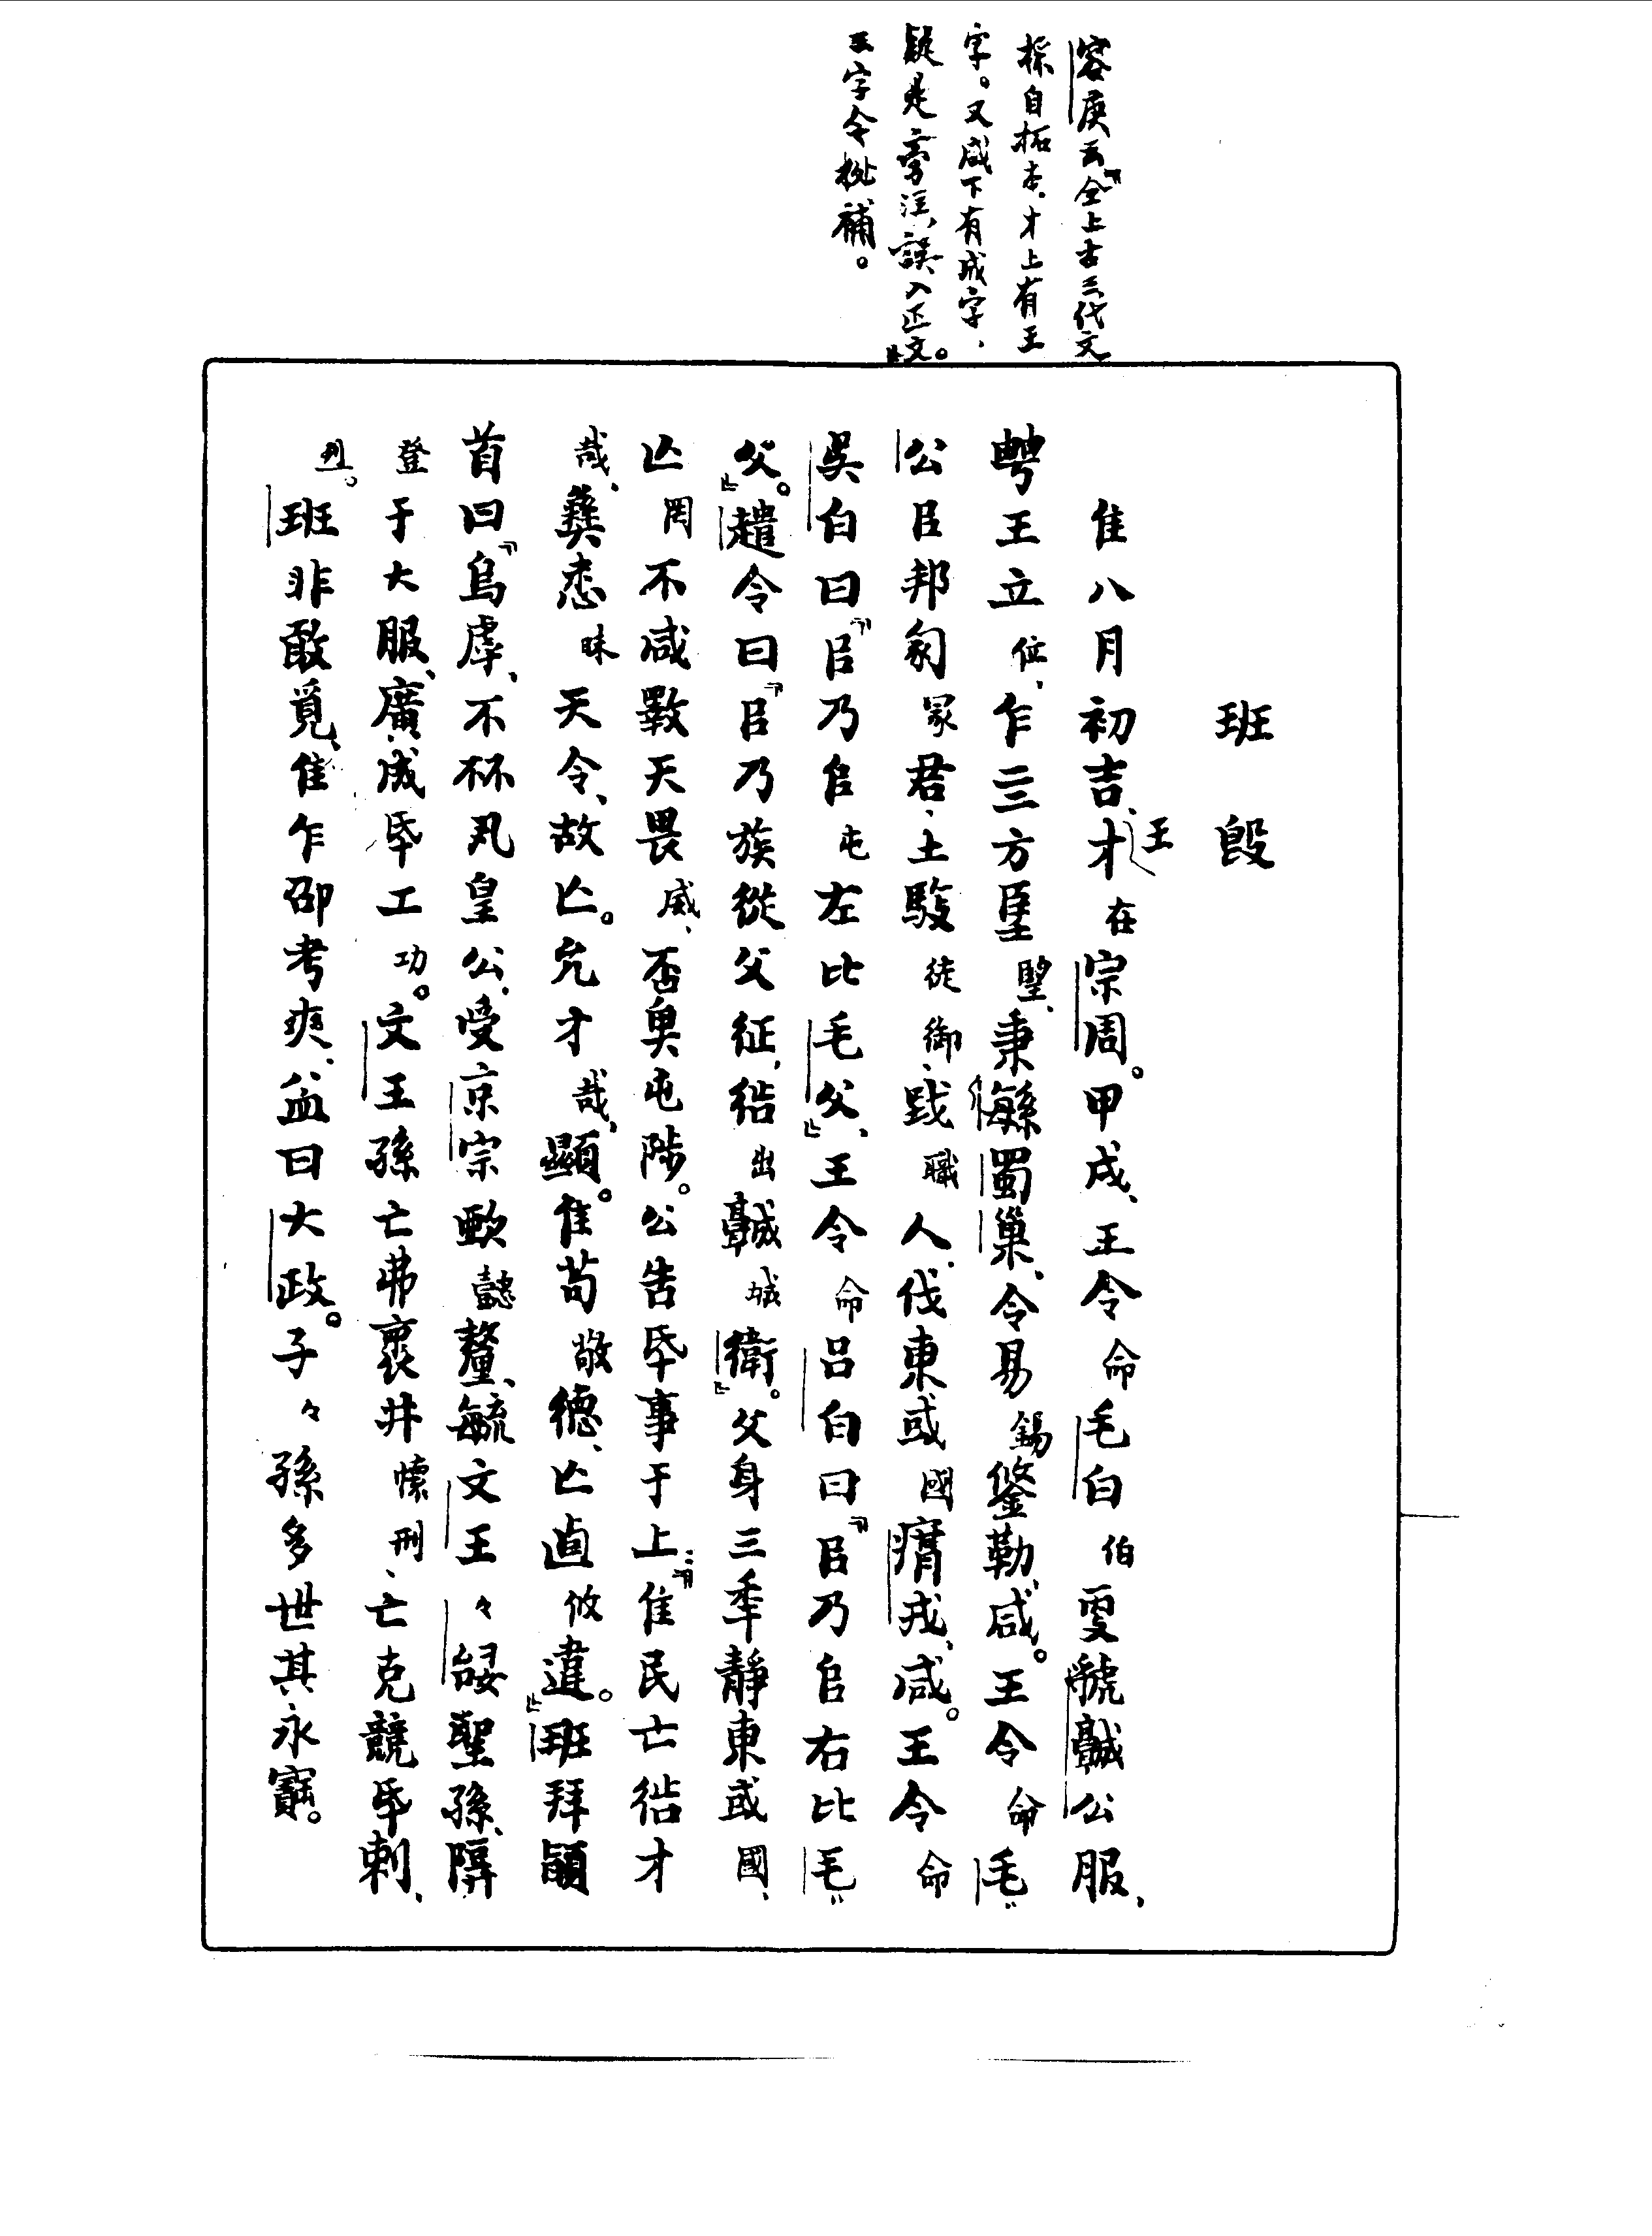 容庚云「全上古三代文
採自拓本,才上有王
字。又咸下有成字、
疑是旁注,誤入正文。」
王字今挩補。
班𣪘
隹八月初吉、王才在宗周。甲戌、王令命毛白伯更虢𩫨公服、
甹王立位、乍三方亟、秉緐蜀巢、令易錫鋚勒、咸。王令命毛=
公㠯邦冢君、土馭徒御、戈人、伐東或國痟戎、咸。王令命
吳白曰「㠯乃𠂤左比毛父」、王令命呂白曰「㠯乃𠂤右比毛=
父。」趞令曰「㠯乃族從父征、𢓊出𩫨城衛。」父身三年靜東或國、
亡罔不咸斁天畏威、否畀屯陟。公告氒事于上:「隹民亡𢓊才
哉、彝㤥昧天令、故亡。允才哉、顯。隹苟敬德、亡逌攸違。」班拜𩒨
首曰「烏虖、不𠀠丮皇公、受京宗懿釐、毓文王々姒聖孫、隮
登于大服、廣成氒工功。文王孫亡弗褱井懷刑、亡克競氒剌、
烈。班非敢覓、隹乍卲考爽、益曰大政。子々孫多世其永寶。